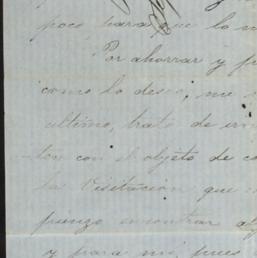 poco para que lo
Por ahorrar y
como lo deseo, me
ultimo, trate de
con el objeto de
la Visitacion que
pienzo encontrar
y para mi, pues